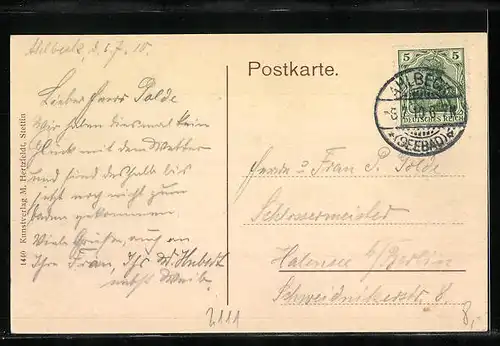 Ahlbeck, d. 6.7.10.
Lieber Herr Polde
Wir haben diesmal kein
Glück mit dem Wetter
und sind deshalb bis
jetzt noch nicht zum
baden gekommen.
Viele Grüße, auch an
Ihre Frau, Ihr W. Hubert
nebst Weib.
1440 Kunstverlag M. Hertzfeldt, Stettin
Postkarte.
5 5
DEUTSCHES REICH
AHLBECK
(SEEBAD)
Herrn u. Frau P. Polde
Schlossermeister
Halensee b/Berlin
Schweidnitzerstr. 8.
2111
8,-